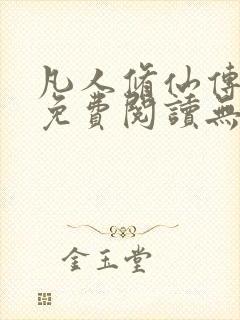 凡人脩仙傳
免費閱讀無
金玉堂